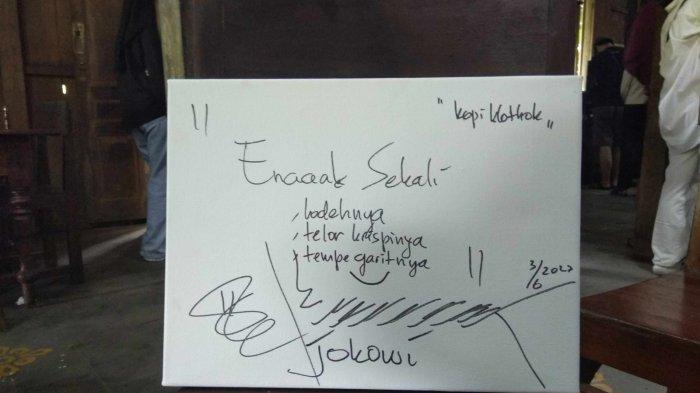 " Kopi Klothok "
" Enaaak Sekali
, lodehnya
, telor krispinya
, tempe garitnya "
3/6 2022
Jokowi